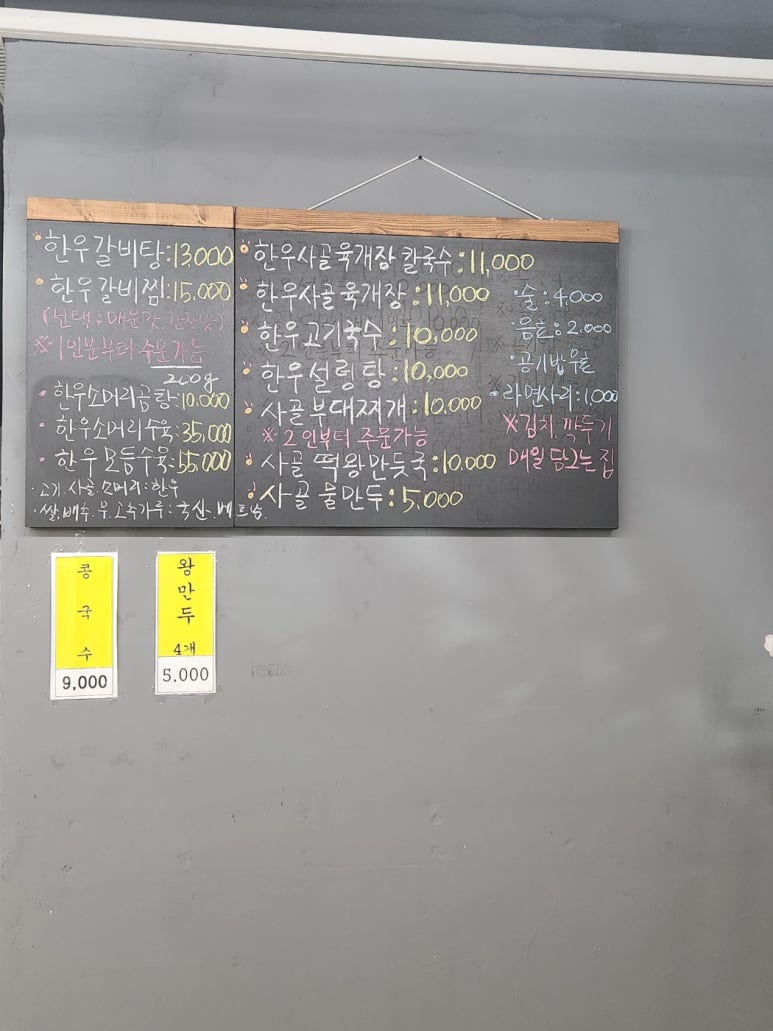 한우갈비탕:13,000
한우갈비찜:15,000
(선택:매운맛,간장맛)
※1인분부터 주문가능
200g
한우소머리곰탕:10,000
한우소머리수육:35,000
한우모듬수육:55,000
·고기.사골.소머리:한우
·쌀.배추.무.고추가루:국산.베트남.
한우사골육개장칼국수:11,000
한우사골육개장:11,000
한우고기국수:10,000
한우설렁탕:10,000
사골부대찌개:10,000
※2인부터 주문가능
사골떡왕만듓국:10,000
사골물만두:5,000
·술:4,000
·음료:2.000
·공기밥 무료
·라면사리:1,000
※김치.깍두기
매일 담그는 집
콩국수
9,000
왕만두
4개
5,000